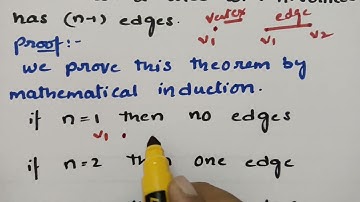 has (n-1) edges. vertex edge
v1 v1 v2
Proof:-
we prove this theorem by
mathematical induction.
if n=1 then no edges
v1
if n=2 then one edge